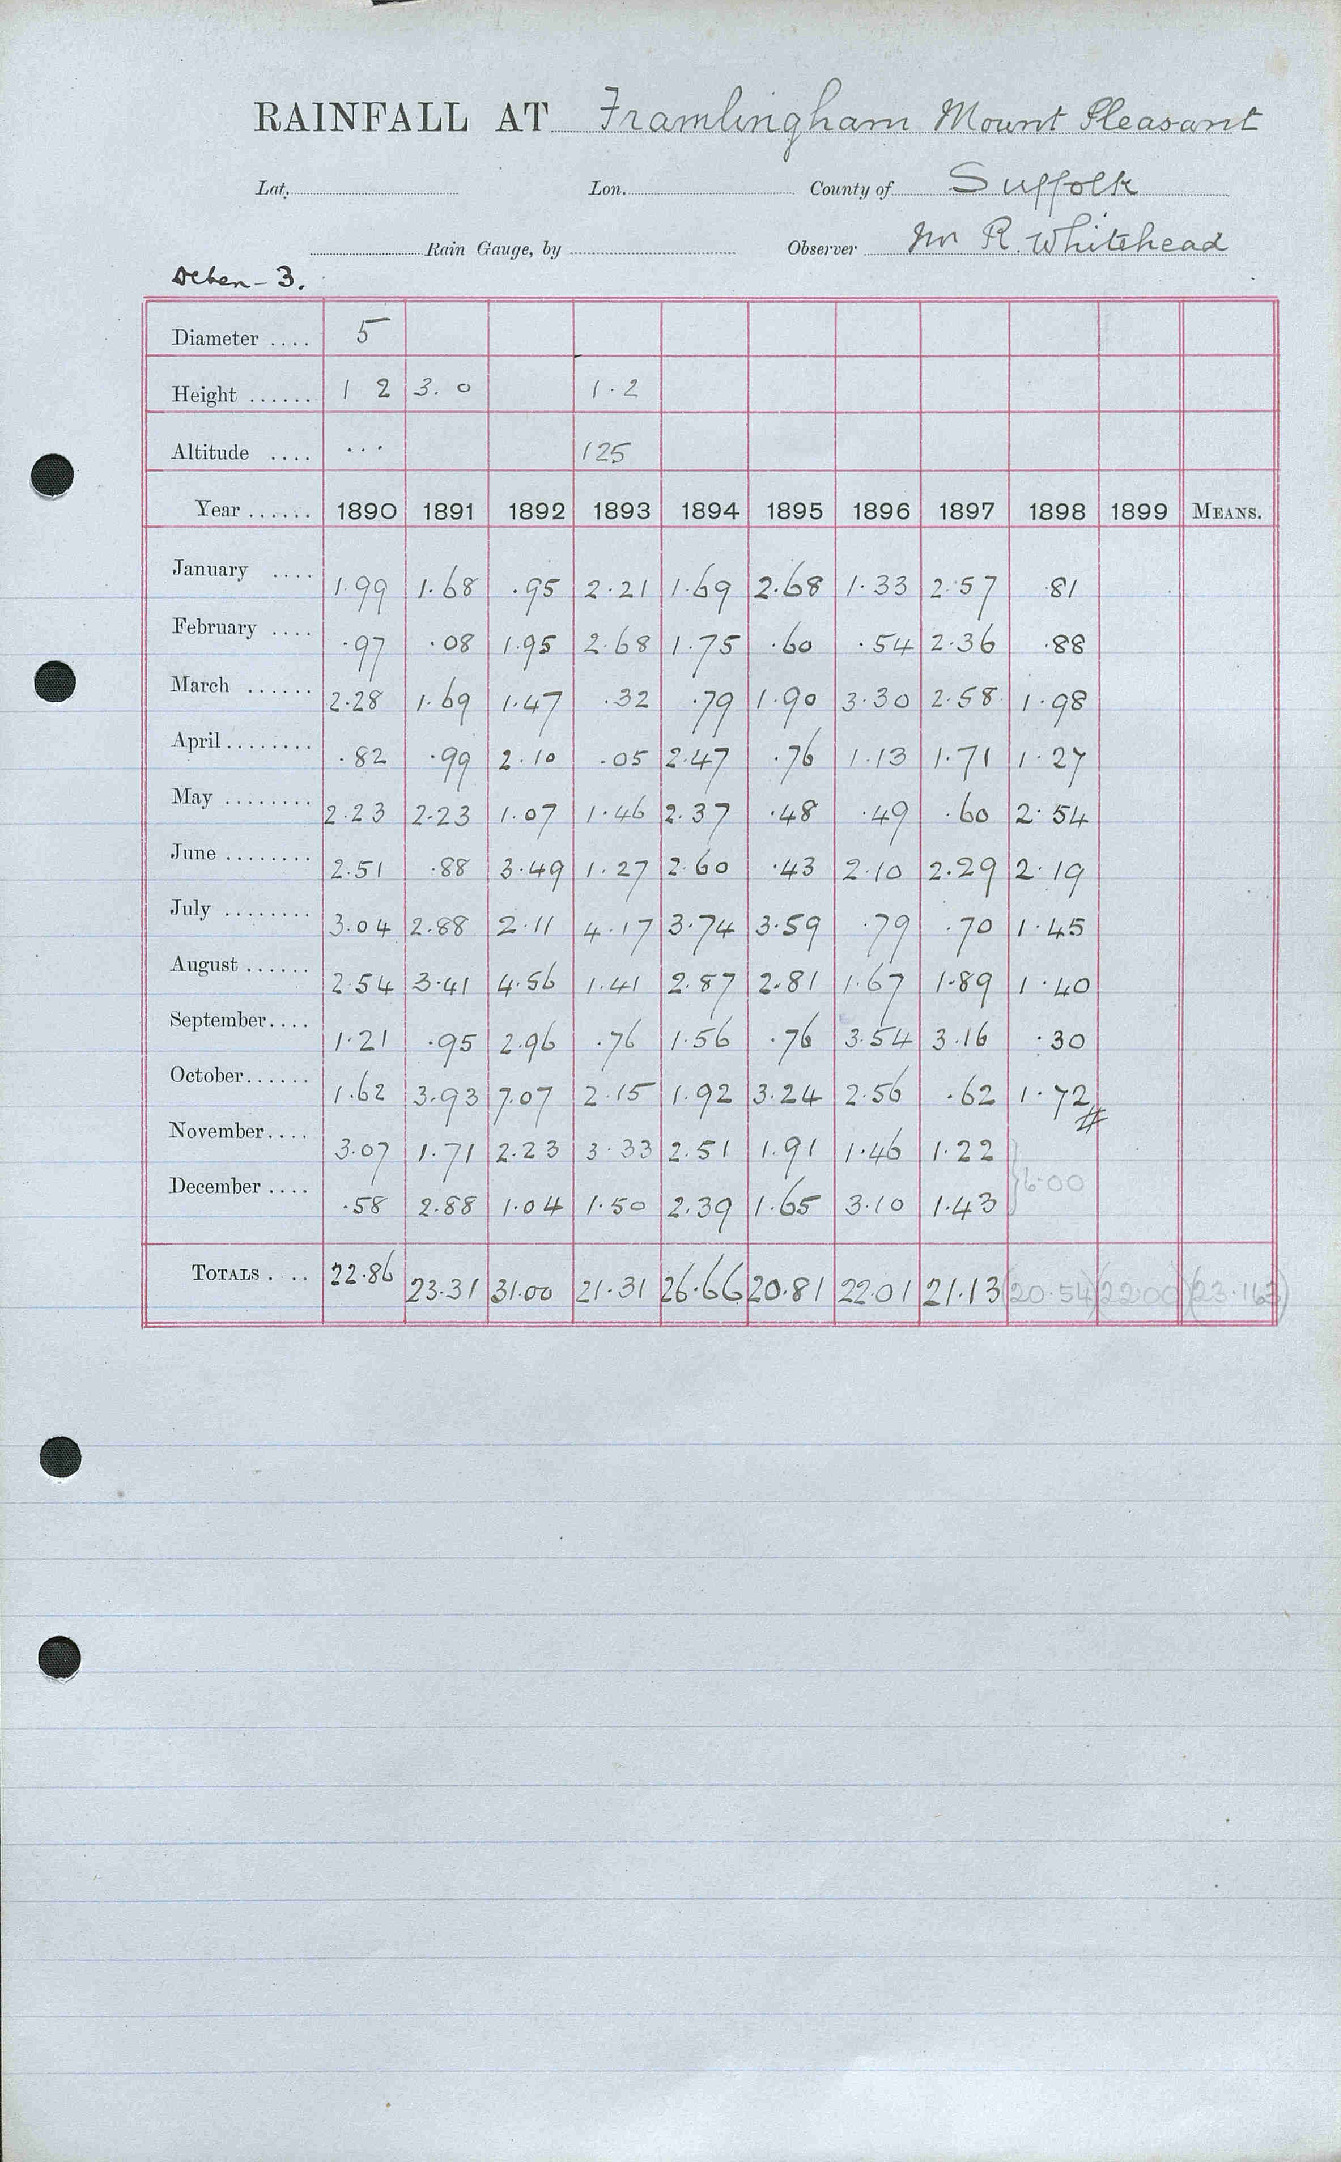 RAINFALL AT Framlingham Mount Pleasant
Lat. Lon. County of Suffolk
Rain Gauge, by Observer Mr R. Whitehead
Deben - 3.
Diameter .... 5
Height ...... 1 2 3.0 1.2
Altitude .... ... 125
Year ...... 1890 1891 1892 1893 1894 1895 1896 1897 1898 1899 MEANS.
January .... 1.99 1.68 .95 2.21 1.69 2.68 1.33 2.57 .81
February .... .97 .08 1.95 2.68 1.75 .60 .54 2.36 .88
March ...... 2.28 1.69 1.47 .32 .79 1.90 3.30 2.58 1.98
April........ .82 .99 2.10 .05 2.47 .76 1.13 1.71 1.27
May ........ 2.23 2.23 1.07 1.46 2.37 .48 .49 .60 2.54
June ........ 2.51 .88 3.49 1.27 2.60 .43 2.10 2.29 2.19
July ........ 3.04 2.88 2.11 4.17 3.74 3.59 .79 .70 1.45
August ...... 2.54 3.41 4.56 1.41 2.87 2.81 1.67 1.89 1.40
September.... 1.21 .95 2.96 .76 1.56 .76 3.54 3.16 .30
October...... 1.62 3.93 7.07 2.15 1.92 3.24 2.56 .62 1.72 #
November.... 3.07 1.71 2.23 3.33 2.51 1.91 1.46 1.22
} 6.00
December .... .58 2.88 1.04 1.50 2.39 1.65 3.10 1.43
TOTALS .... 22.86 23.31 31.00 21.31 26.66 20.81 22.01 21.13 (20.54) (22.00) (23.163)